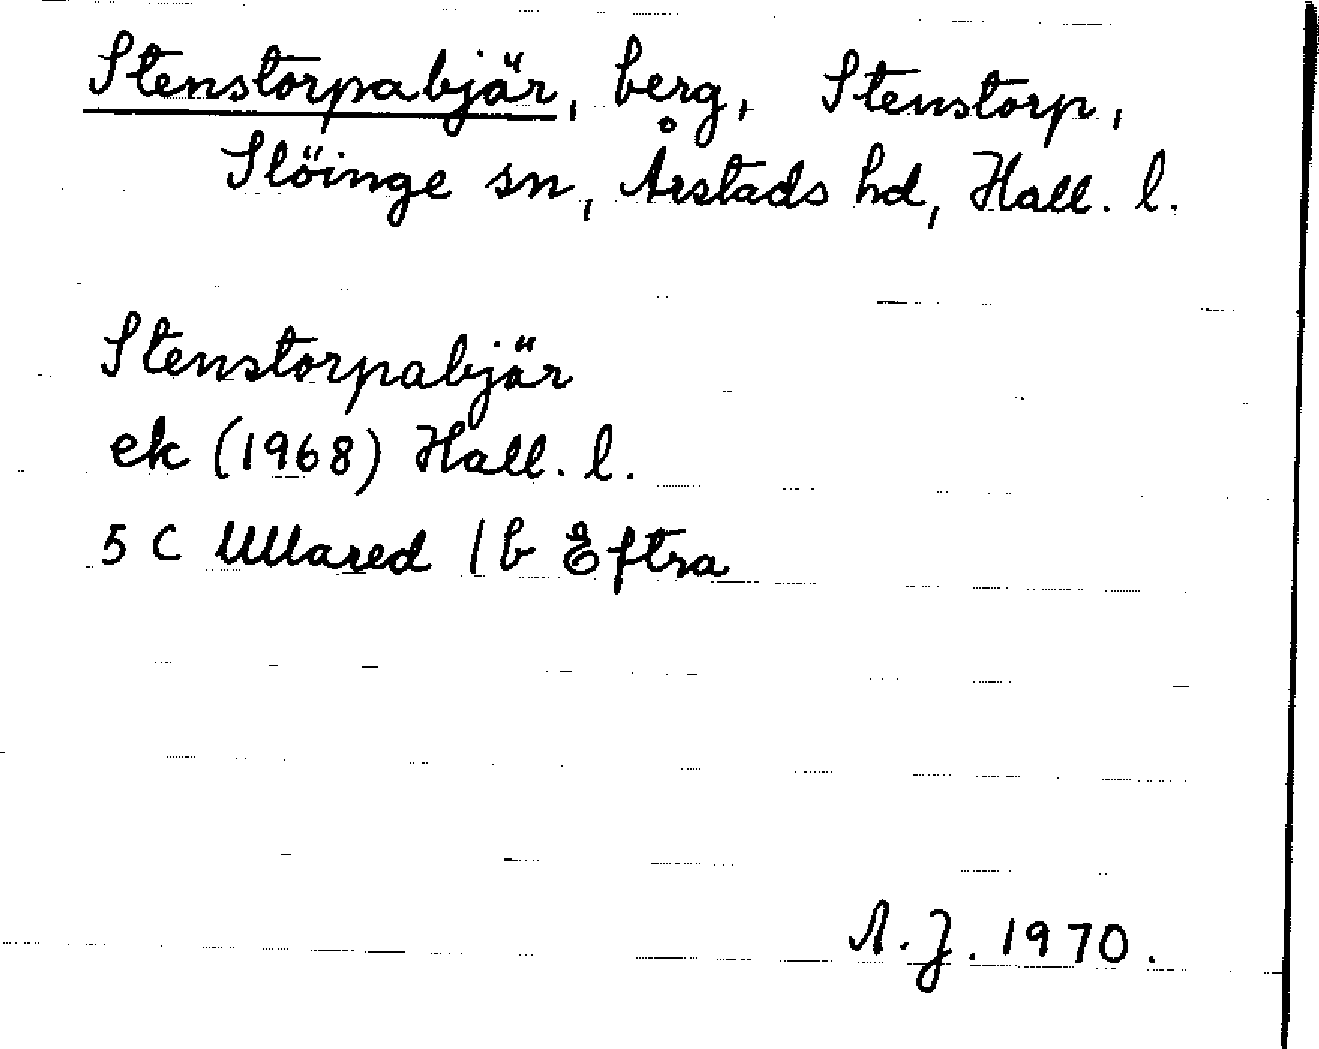 Stenstorpabjär, berg, Stenstorp,
Slöinge sn, Årstads hd, Hall. l.
Stenstorpabjär
ek (1968) Hall. l.
5 C Ullared 1 b Eftra
A. J. 1970.